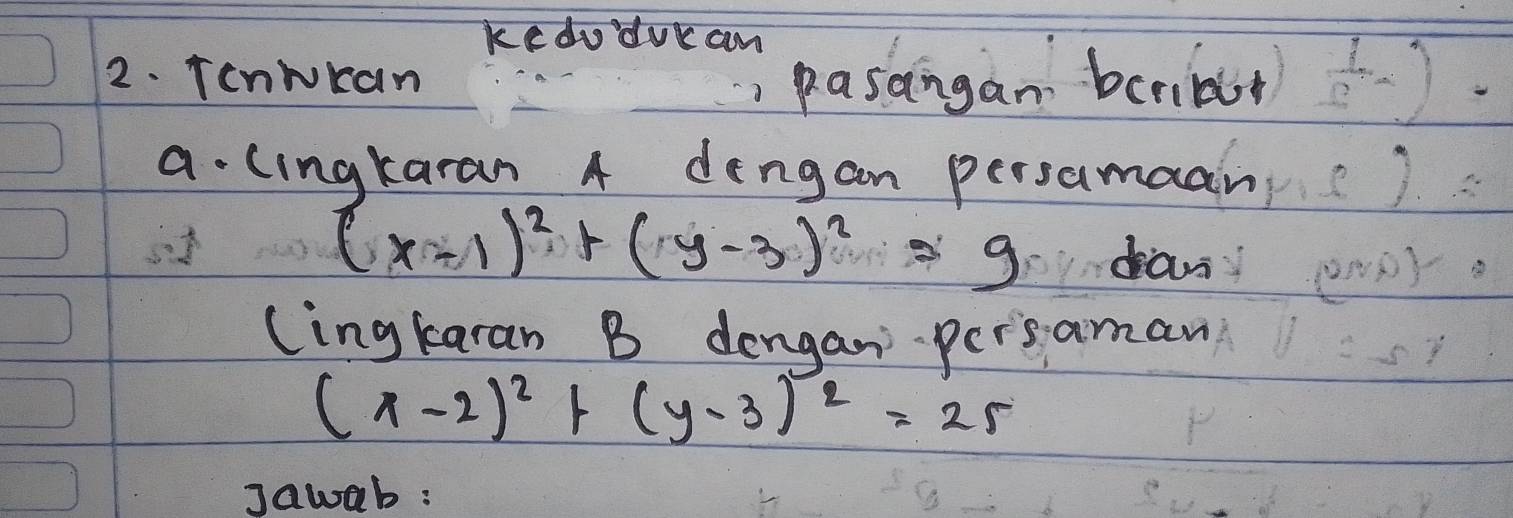 2. Tentukan kedudukan pasangan berikut
a. Lingkaran A dengan persamaan
(x-1)² + (y-3)² = 9 dan
Lingkaran B dengan persaman
(x-2)² + (y-3)² = 25
Jawab: